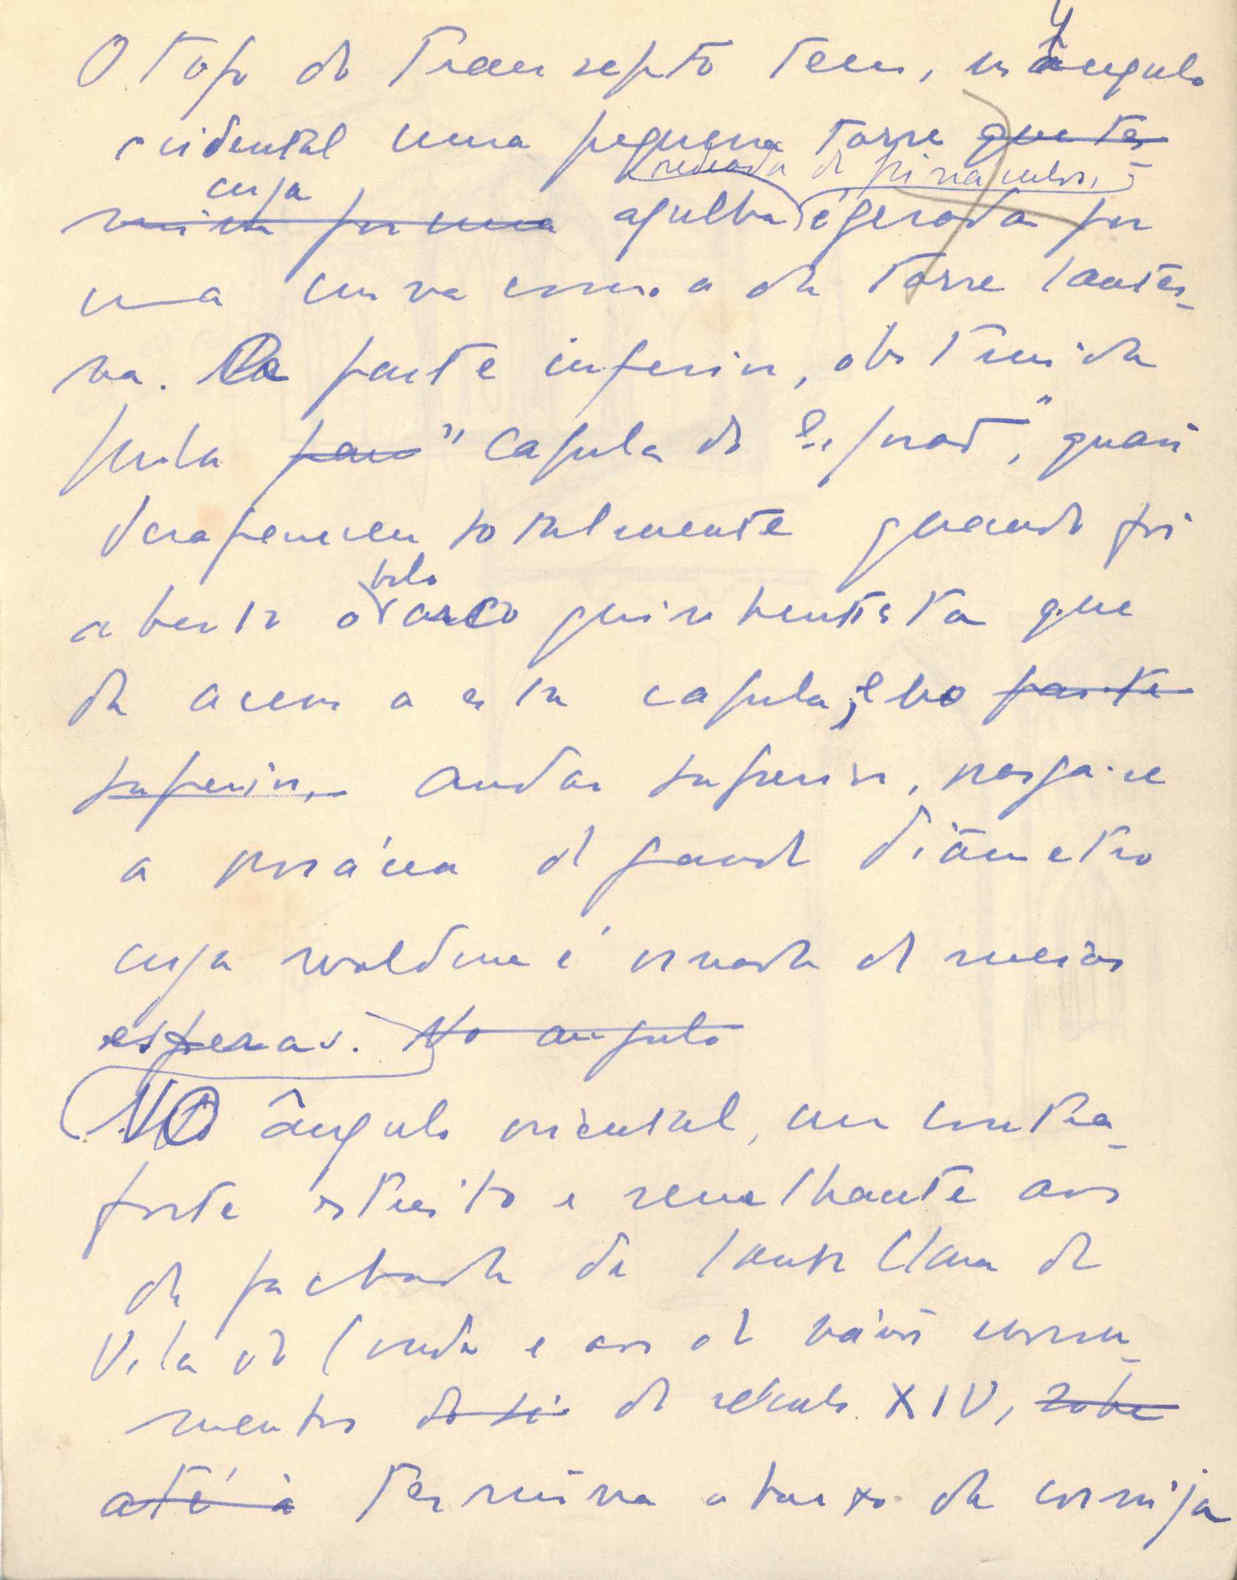 O topo do Transepto tem, no ângulo
ocidental uma pequena torre que ter-
cuja rodeada de pináculos,
mina por uma agulha é gerada por
uma curva como a da torre lanter-
na. Na parte inferior, obstruida
pela para "capela do Esporão", quasi
desapareceu totalmente quando foi
belo
aberto o arco quinhentista que
da acesso a esta capela; e no parte
superior, andar superior, rasga-se
a rosácea de grande diâmetro
cuja moldura é ornada de meias
esferas. No angulo
No ângulo oriental, um contra-
forte estreito e semelhante aos
da fachada da Santa Clara de
Vila do Conde e aos de vários monu-
mentos do sé do século XIV, sobe
até à termina abaixo da cornija